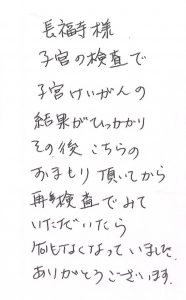 長福寺様
子宮の検査で
子宮けいがんの
結果がひっかかり
その後こちらの
おまもり頂いてから
再検査でみて
いただいたら
何もなくなっていました
ありがとうございます.